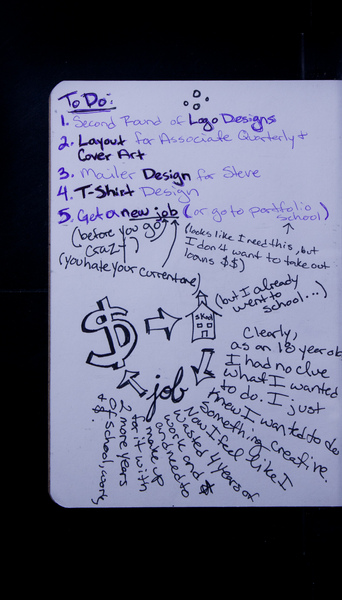 To Do:
1. Second Round of Logo Designs
2. Layout for Associate Quarterly +
Cover Art
3. Mailer Design for Steve
4. T-Shirt Design
5. Get a new job (or go to portfolio
school)
(before you go
crazy)
(looks like I need this, but
I don't want to take out
loans $$)
(you hate your current one)
(but I already
went to
school...)
$
skool
job
Clearly,
as an 18 year old
I had no clue
what I wanted
to do. I just
knew I wanted to do
something creative.
Now I feel like I
wasted 4 years of
work and $
and need to
make up
for it with
2 more years
of school, work,
+ $.